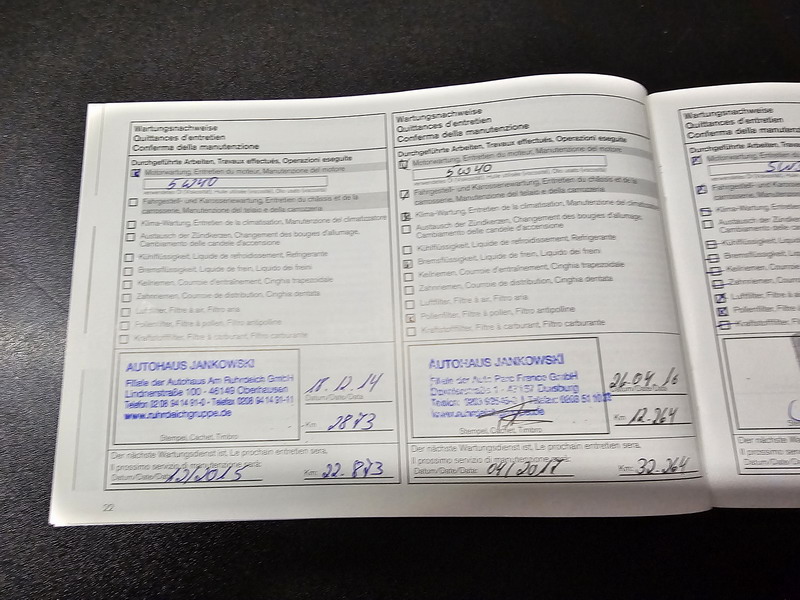 Wartungsnachweise
Quittances d'entretien
Conferma della manutenzione
Durchgeführte Arbeiten, Travaux effectués, Operazioni eseguite
Motorwartung, Entretien du moteur, Manutenzione del motore
5W40
Fahrgestell- und Karosseriewartung, Entretien du châssis et de la
carrosserie, Manutenzione del telaio e della carrozzeria
Klima-Wartung, Entretien de la climatisation, Manutenzione del climatizzatore
Austausch der Zündkerzen, Changement des bougies d'allumage,
Cambiamento delle candele d'accensione
Kühlflüssigkeit, Liquide de refroidissement, Refrigerante
Bremsflüssigkeit, Liquide de frein, Liquido dei freini
Keilriemen, Courroie d'entraînement, Cinghia trapezoidale
Zahnriemen, Courroie de distribution, Cinghia dentata
Luftfilter, Filtre à air, Filtro aria
Pollenfilter, Filtre à pollen, Filtro antipolline
Kraftstofffilter, Filtre à carburant, Filtro carburante
AUTOHAUS JANKOWSKI
Filiale der Autohaus Am Ruhrdeich GmbH
Lindnerstraße 100 - 46149 Oberhausen
Telefon: 02 08 94 14 91-0 - Telefax: 0208 94 14 91-11
www.ruhrdeichgruppe.de
Stempel, Cachet, Timbro
18.12.14
Datum/Date/Data
Km:
Der nächste Wartungsdienst ist, Le prochain entretien sera,
Il prossimo servizio di manutenzione serà:
Datum/Date/Data: 12/2015 Km: 22.873
22
Wartungsnachweise
Quittances d'entretien
Conferma della manutenzione
Durchgeführte Arbeiten, Travaux effectués, Operazioni eseguite
Motorwartung, Entretien du moteur, Manutenzione del motore
5W40
Fahrgestell- und Karosseriewartung, Entretien du châssis et de la
carrosserie, Manutenzione del telaio e della carrozzeria
Klima-Wartung, Entretien de la climatisation, Manutenzione del climatizzatore
Austausch der Zündkerzen, Changement des bougies d'allumage,
Cambiamento delle candele d'accensione
Kühlflüssigkeit, Liquide de refroidissement, Refrigerante
Bremsflüssigkeit, Liquide de frein, Liquido dei freini
Keilriemen, Courroie d'entraînement, Cinghia trapezoidale
Zahnriemen, Courroie de distribution, Cinghia dentata
Luftfilter, Filtre à air, Filtro aria
Pollenfilter, Filtre à pollen, Filtro antipolline
Kraftstofffilter, Filtre à carburant, Filtro carburante
AUTOHAUS JANKOWSKI
Filiale der Auto Parc France GmbH
Duisburg
Stempel, Cachet, Timbro
26.04.16
Datum/Date/Data
Km: 12.264
Der nächste Wartungsdienst ist, Le prochain entretien sera,
Il prossimo servizio di manutenzione serà:
Datum/Date/Data: 04/2017 Km: 32.264
Wartungsnachweise
Quittances d'entretien
Conferma della manutenzione
Durchgeführte Arbeiten, Travaux
Motorwartung, Entretien du
Fahrgestell- und Karosseriewartung
carrosserie, Manutenzione
Klima-Wartung, Entretien
Austausch der Zündkerzen
Cambiamento delle candele
Kühlflüssigkeit, Liquide
Bremsflüssigkeit, Liquide
Keilriemen, Courroie
Zahnriemen, Courroie
Luftfilter, Filtre à
Pollenfilter, Filtre
Kraftstofffilter,
Stempel,
Der nächste Wartungs
Il prossimo servizio
Datum/Date/Data: